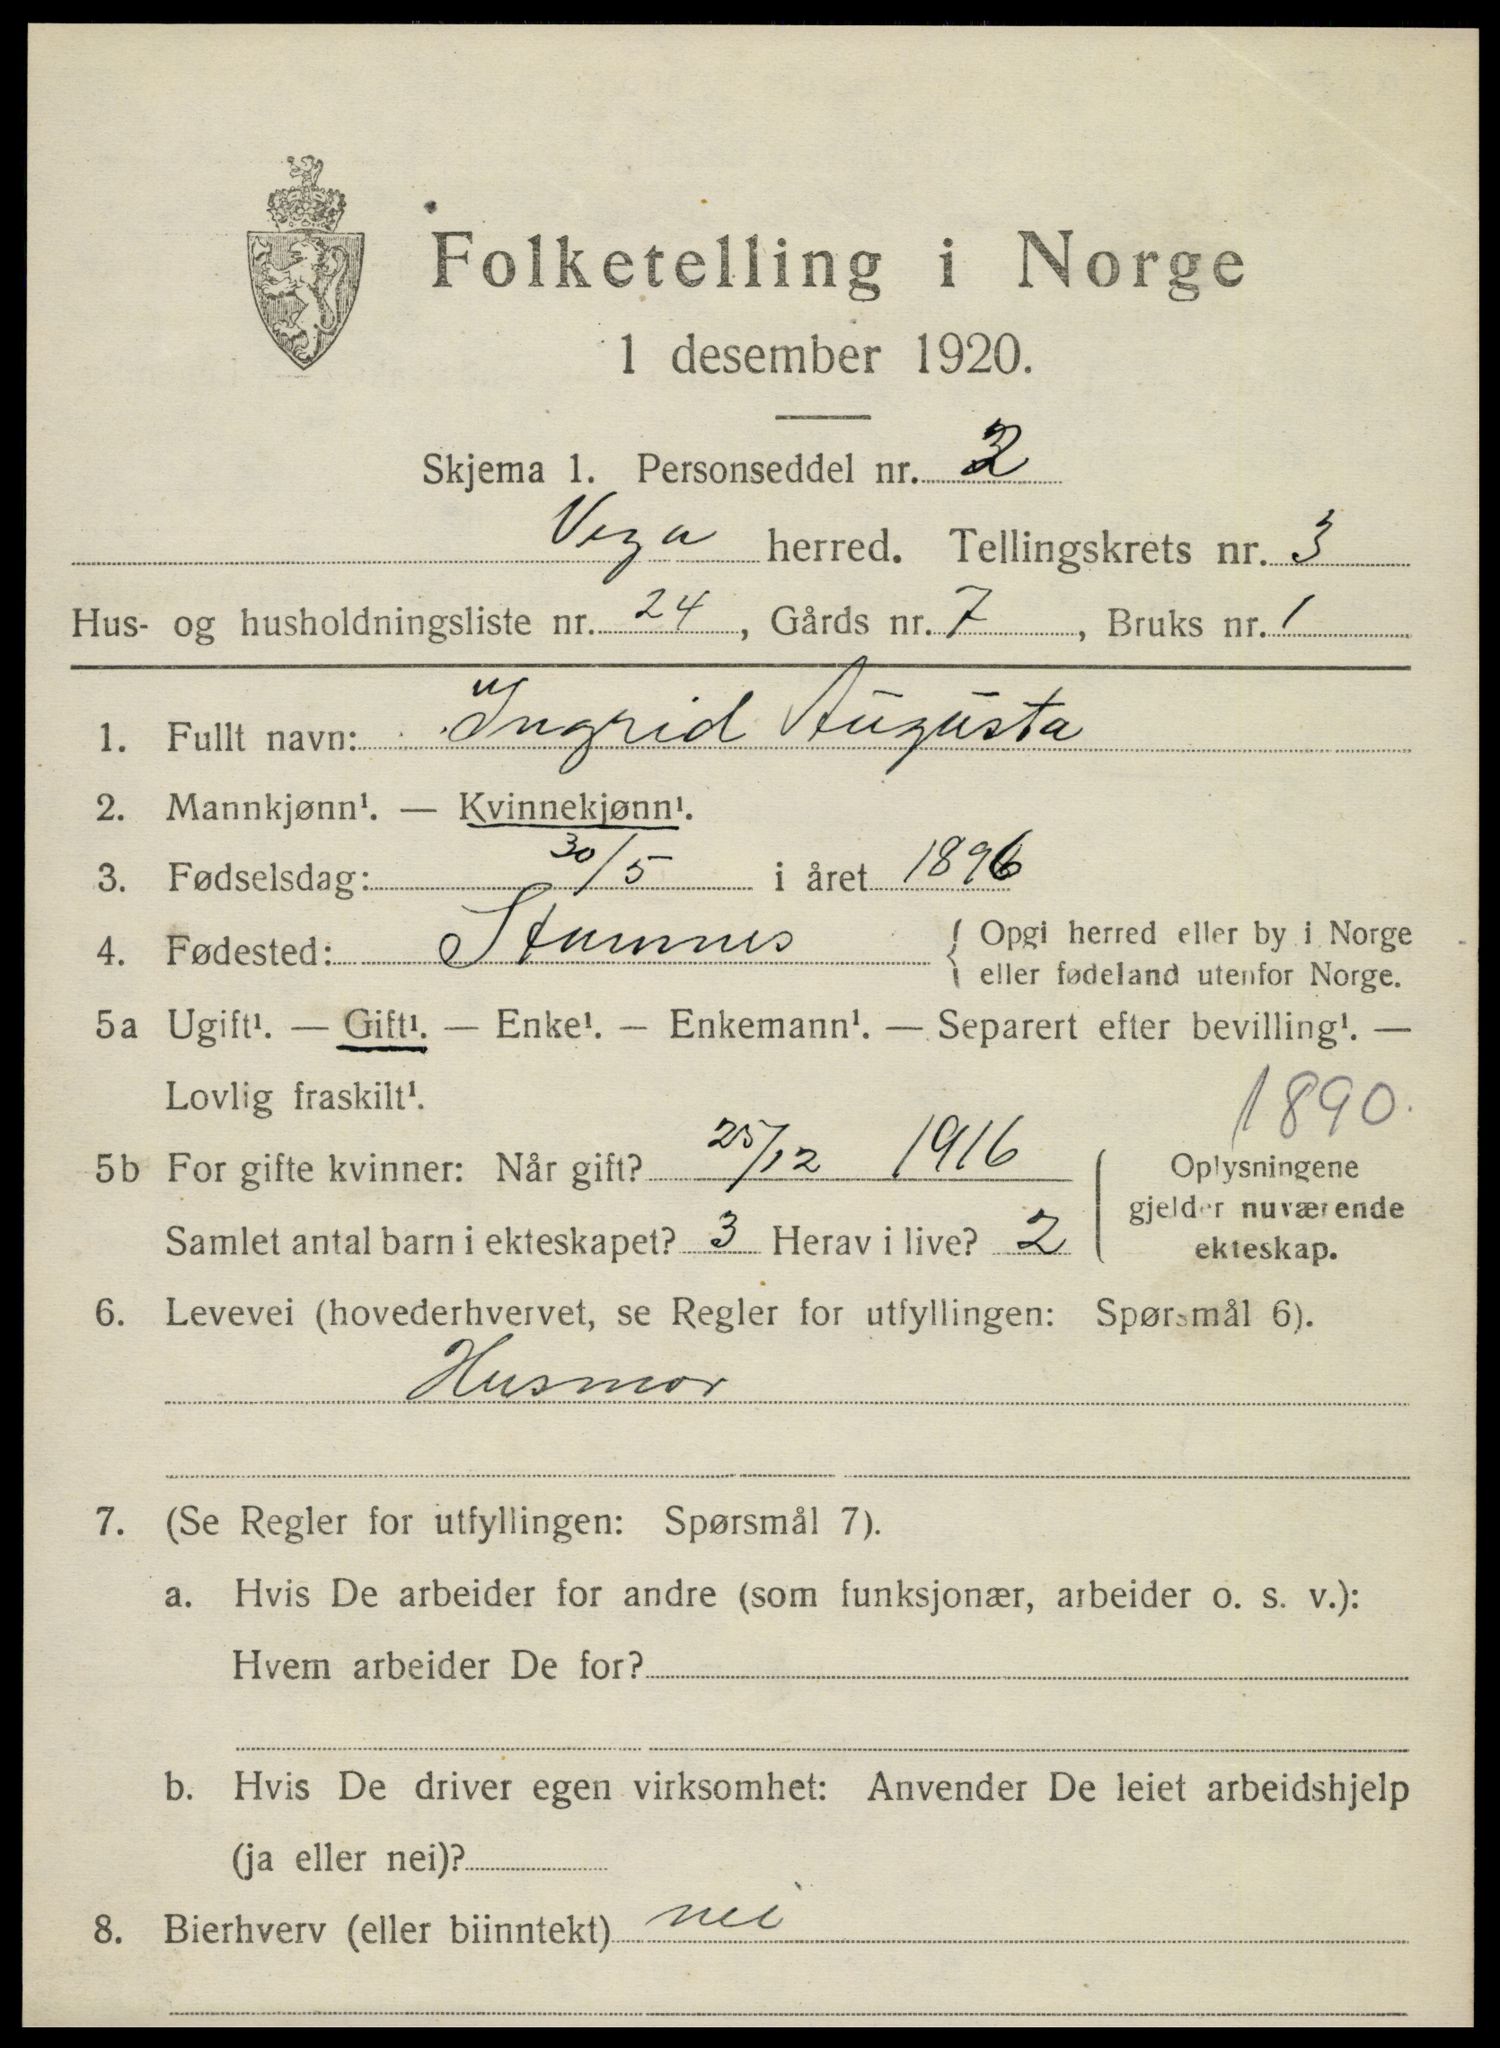 Folketelling i Norge
1 desember 1920.
Skjema 1. Personseddel nr. 2
Vega herred. Tellingskrets nr. 3
Hus- og husholdningsliste nr. 24, Gårds nr. 7, Bruks nr. 1
1. Fullt navn: Ingrid Augusta
2. Mannkjønn¹. — Kvinnekjønn¹.
3. Fødselsdag: 30/5 i året 1896
4. Fødested: Stamnes { Opgi herred eller by i Norge
eller fødeland utenfor Norge.
5a Ugift¹. — Gift¹. — Enke¹. — Enkemann¹. — Separert efter bevilling¹. —
Lovlig fraskilt¹.
1890.
5b For gifte kvinner: Når gift? 25/12 1916
Samlet antal barn i ekteskapet? 3 Herav i live? 2
Oplysningene
gjelder nuværende
ekteskap.
6. Levevei (hovederhvervet, se Regler for utfyllingen: Spørsmål 6).
Husmor
7. (Se Regler for utfyllingen: Spørsmål 7).
a. Hvis De arbeider for andre (som funksjonær, arbeider o. s. v.):
Hvem arbeider De for?
b. Hvis De driver egen virksomhet: Anvender De leiet arbeidshjelp
(ja eller nei)?
8. Bierhverv (eller biinntekt) nei